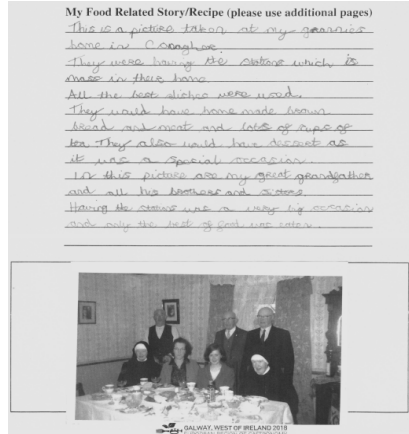 My Food Related Story/Recipe (please use additional pages)
This is a picture taken at my grannies
home in Conaghar.
They were having the stations which is
mass in their home.
All the best dishes were used.
They would have home made brown
bread and meat and lots of cups of
tea. They also would have dessert as
it was a special occasion.
In this picture are my great grandfather
and all his brothers and sisters.
Having the stations was a very big occasion
and only the best of food was eaten.
GALWAY, WEST OF IRELAND 2018